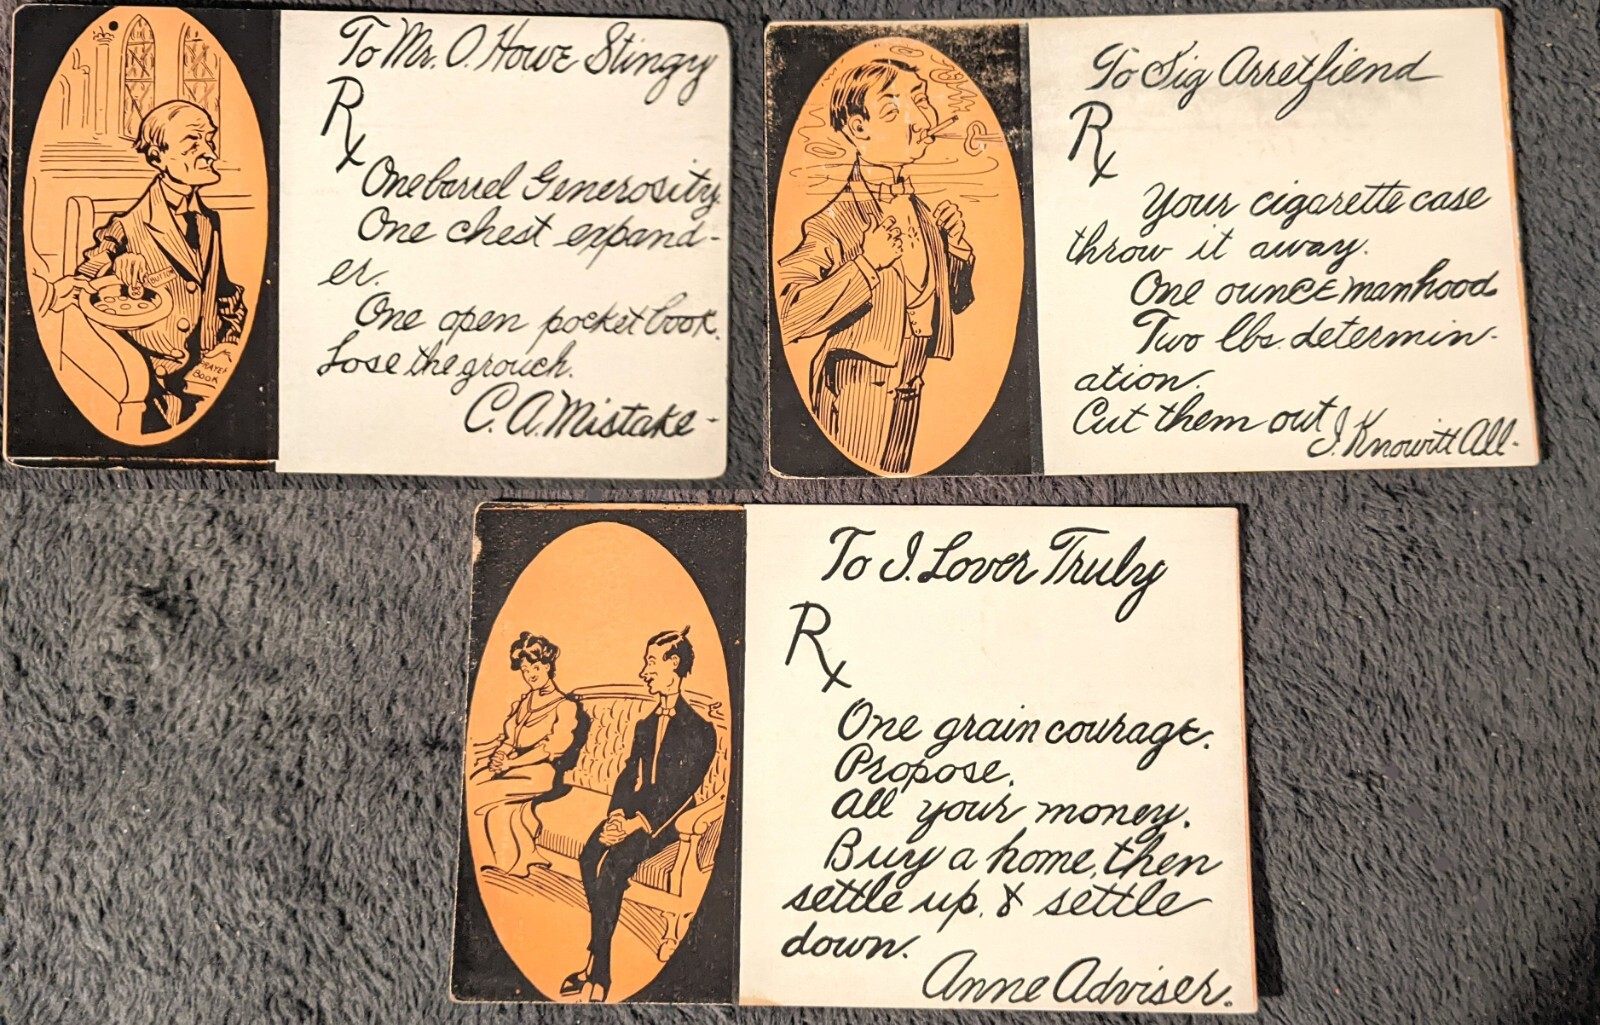 To Mr. O. Howe Stingy
Rx
One barrel Generosity.
One chest expand-
er.
One open pocketbook.
Lose the grouch.
C. A. Mistake -
BUTTON
PRAYER
BOOK
To Sig Arretfiend
Rx
Your cigarette case
throw it away.
One ounce manhood
Two lbs. determin-
ation.
Cut them out
I. Knowitt All -
To I. Lover Truly
Rx
One grain courage.
Propose.
All your money.
Buy a home, then
settle up, & settle
down.
Anne Adviser.